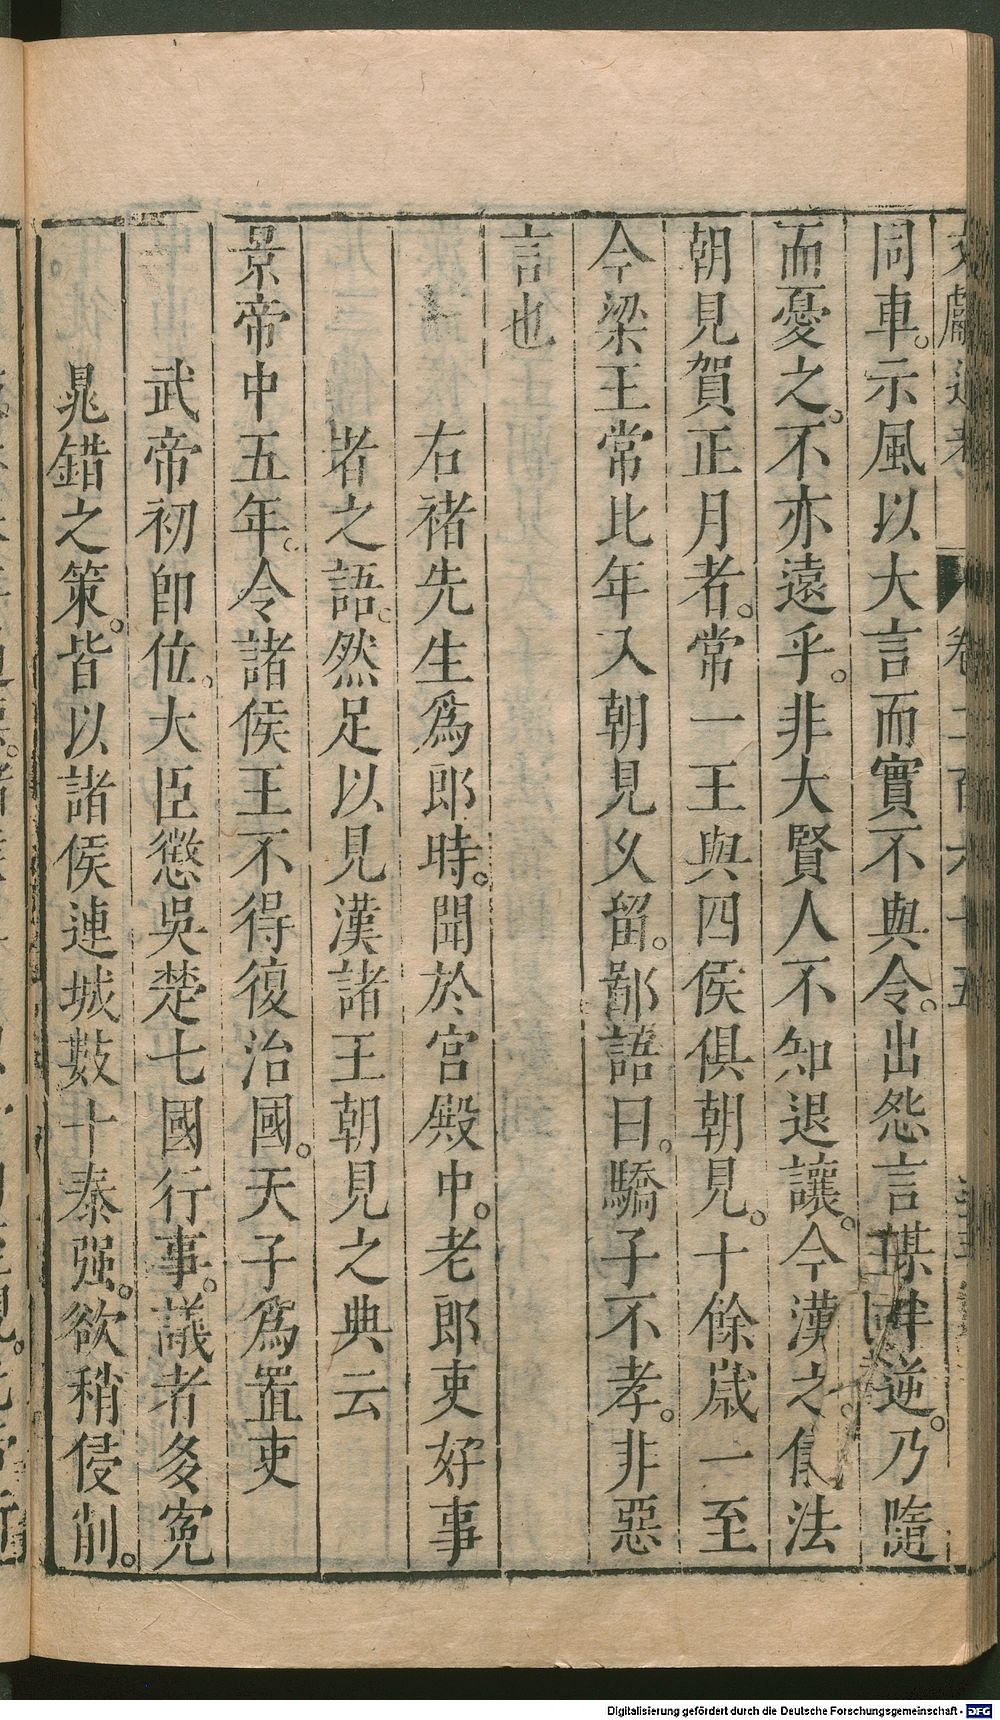 文獻通考 卷二百六十五
同車。示風以大言而實不與。令出怨言謀畔逆。乃隨
而憂之。不亦遠乎。非大賢人不知退讓。今漢之儀法
朝見賀正月者。常一王與四侯俱朝見。十餘歲一至
今梁王常比年入朝見久留。鄙語曰。驕子不孝。非惡
言也
右褚先生爲郎時。聞於宮殿中。老郎吏好事
者之語。然足以見漢諸王朝見之典云
景帝中五年。令諸侯王不得復治國。天子爲置吏
武帝初卽位。大臣懲吳楚七國行事。議者多寃
鼂錯之策。皆以諸侯連城數十泰强。欲稍侵削。
Digitalisierung gefördert durch die Deutsche Forschungsgemeinschaft - DFG